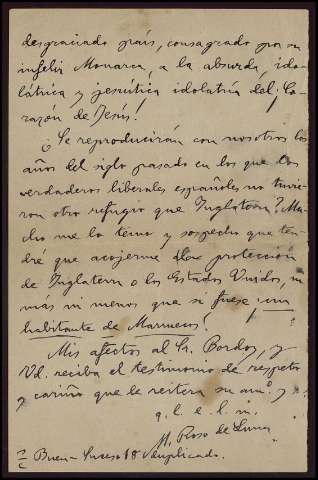 desgraciado país, consagrado por su
infeliz Monarca, a la absurda, ido-
látrica y jesuítica idolatría del Co-
razón de Jesús!
¿Se reproducirán con nosotros los
años del siglo pasado en los que los
verdaderos liberales españoles no tuvie-
ron otro refugio que Inglaterra? Mu-
cho me lo temo y sospecho que ten-
dré que acojerme a la protección
de Inglaterra o los Estados Unidos, ni
más ni menos que si fuese un
habitante de Marruecos!
Mis afectos al Sr. Bordoy, y
Vd. reciba el testimonio de respeto
y cariño que le reitera su amº. y
q. l. e. l. m.
M. Roso de Luna
Buen Suceso 18 duplicado.